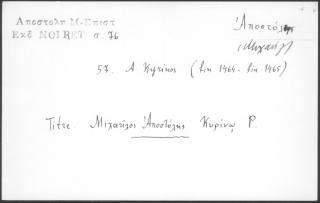 Αποστολη Μ-Επιστ
Εκδ NOIRET σ. 76
Ἀποστόλης
(Μιχαήλ)
57. Α Κυρίνος (fin 1464 - fin 1465)
Titre Μιχαῆλος Ἀποστόλης Κυρίνῳ Ρ.